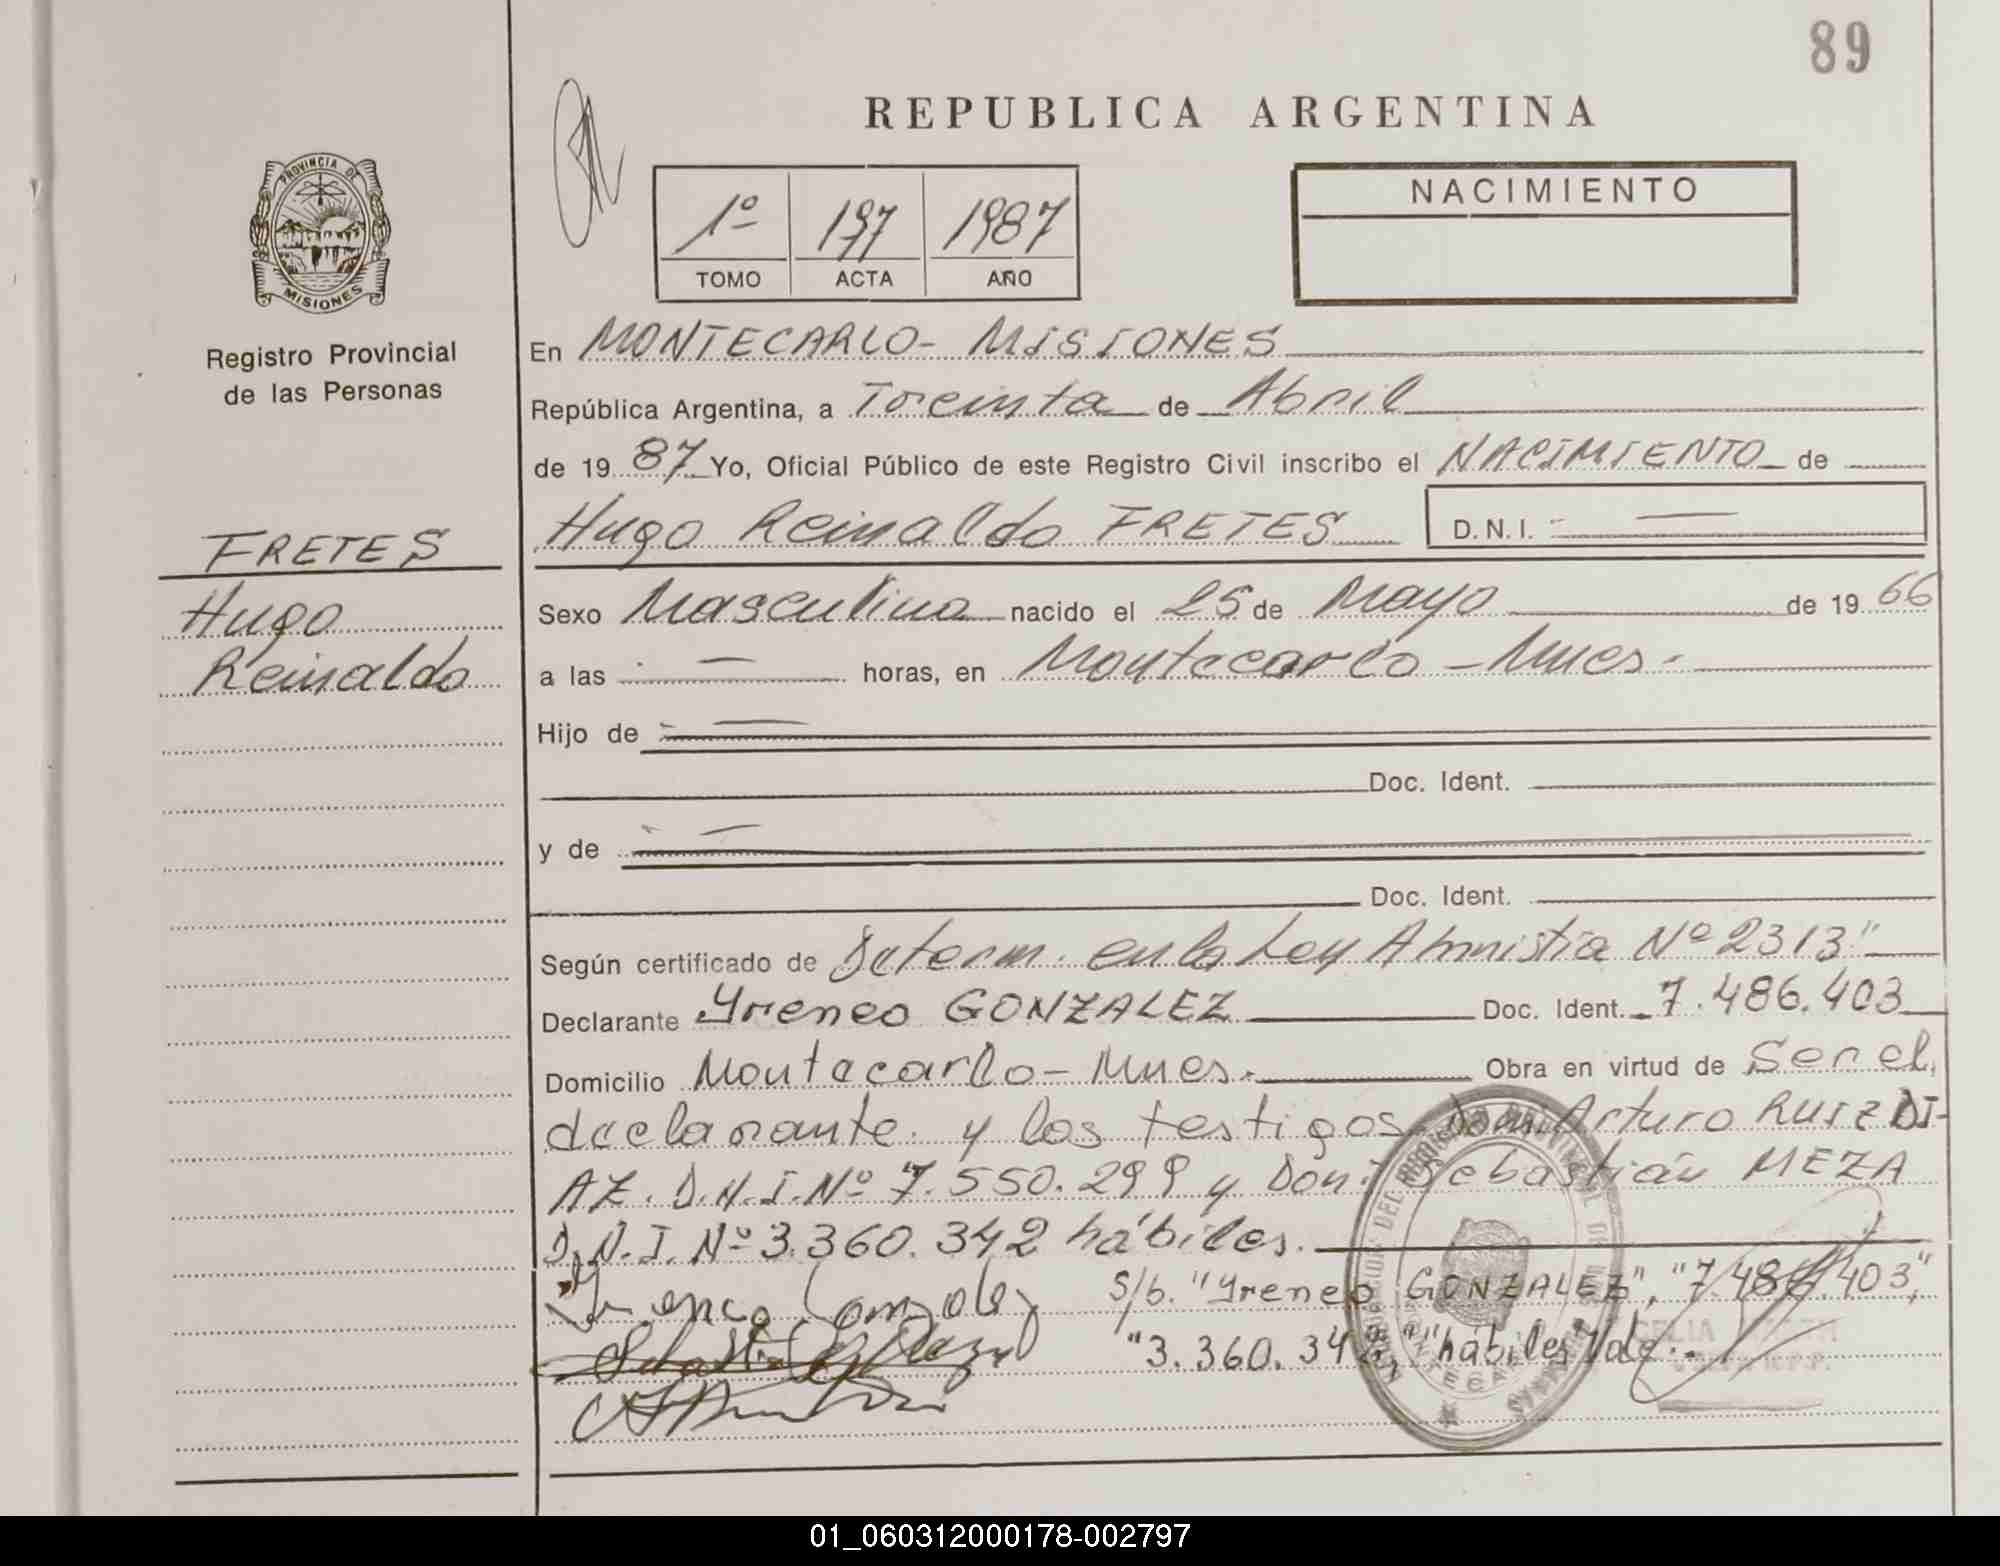 89
REPUBLICA ARGENTINA
PROVINCIA DE
MISIONES
Registro Provincial
de las Personas
1º 197 1987
TOMO ACTA AÑO
NACIMIENTO
En MONTECARLO - MISIONES
República Argentina, a Treinta de Abril
de 19 87 Yo, Oficial Público de este Registro Civil inscribo el NACIMIENTO de
Hugo Reinaldo FRETES D.N.I. -
FRETES
Hugo
Reinaldo
Sexo Masculino nacido el 25 de Mayo de 19 66
a las - horas, en Montecarlo - Mnes.
Hijo de
Doc. Ident.
y de
Doc. Ident.
Según certificado de Determ. en la Ley Amnistia Nº 2313"
Declarante Yreneo GONZALEZ Doc. Ident. 7.486.403
Domicilio Montecarlo - Mnes. Obra en virtud de Ser el
declarante y los testigos Don: Arturo Ruiz DI-
AZ. D.N.I. Nº 7.550.299 y Don: Sebastián MEZA
D.N.I. Nº 3.360.342 hábiles.
S/b. "Yreneo GONZALEZ", "7.486.403",
"3.360.342", "hábiles" Vale.
01_060312000178-002797